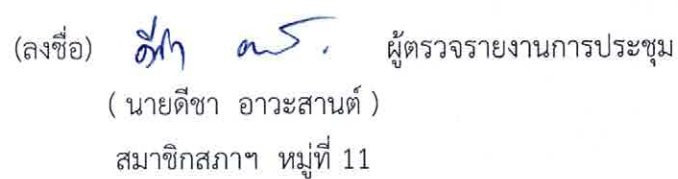 (ลงชื่อ) ดีชา ผู้ตรวจรายงานการประชุม
( นายดีชา อาวะสานต์ )
สมาชิกสภาฯ หมู่ที่ 11